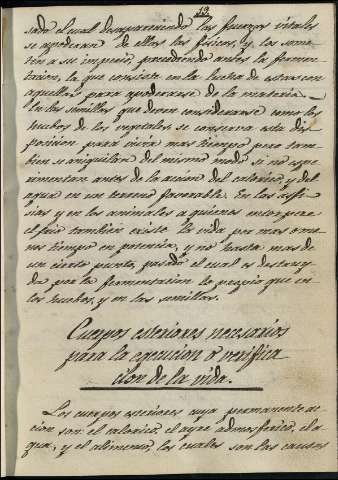 19
sado el cual desapareciendo las fuerzas vitales
se apoderan de ellos las fisicas, y, los some
ten a su imperio, precediendo antes la fermen
tacion, la que consiste en la lucha de estas con
aquellas para apoderarse de la materia.
En las semillas que deven considerarse como los
huebos de los vegetales se conserva esta dis
posicion para vivir mas tiempo pero tam
bien se aniquilan del mismo modo si no espe
rimentan antes de la accion del calorico, y del
agua en un terreno favorable. En las asfi
sias y en los animales a quienes entorpece
el frio tambien existe la vida por mas o me
nos tiempo en potencia, y no hasta mas de
un cierto punto, pasado el cual es destruy
da por la fermentacion lo propio que en
los huebos, y en las semillas.
Cuerpos esteriores necesarios
para la egecucion o verifica
cion de la vida.
Los cuerpos esteriores cuya permanente ac
cion son: el calorico, el ayre admosferico, el a
gua, y el alimento, los cuales son las causas